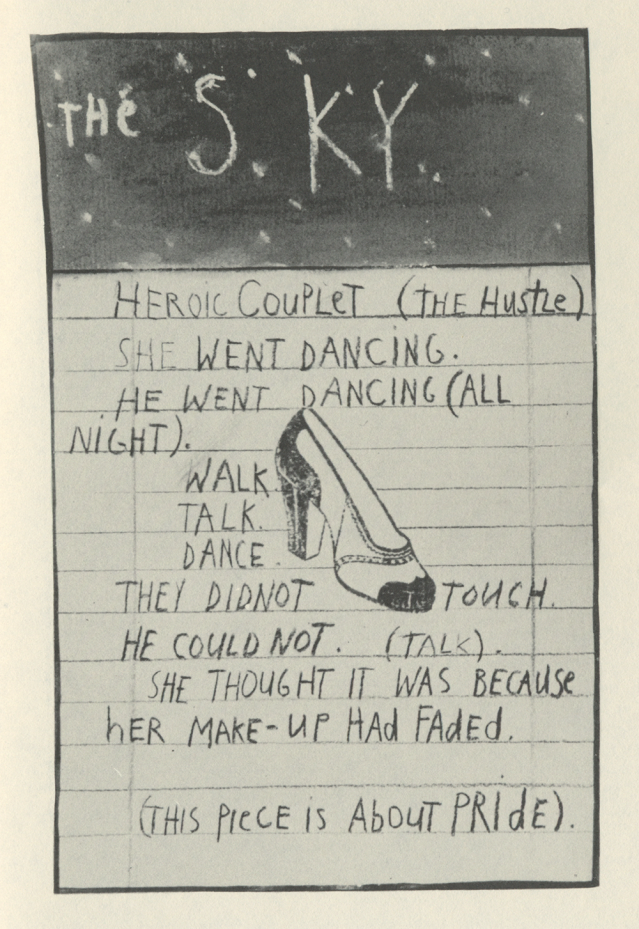 THE S.KY.
HEROIC COUPLET (THE HustLe)
SHE WENT DANCING.
HE WENT DANCING (ALL
NIGHT).
WALK.
TALK.
DANCE.
THEY DIDNOT TOUCH.
HE COULD NOT. (TALK).
SHE THOUGHT IT WAS BECAUSe
hER MAKE-UP HAd FAdEd.
(THIS PieCE is AbOUT PRIdE).